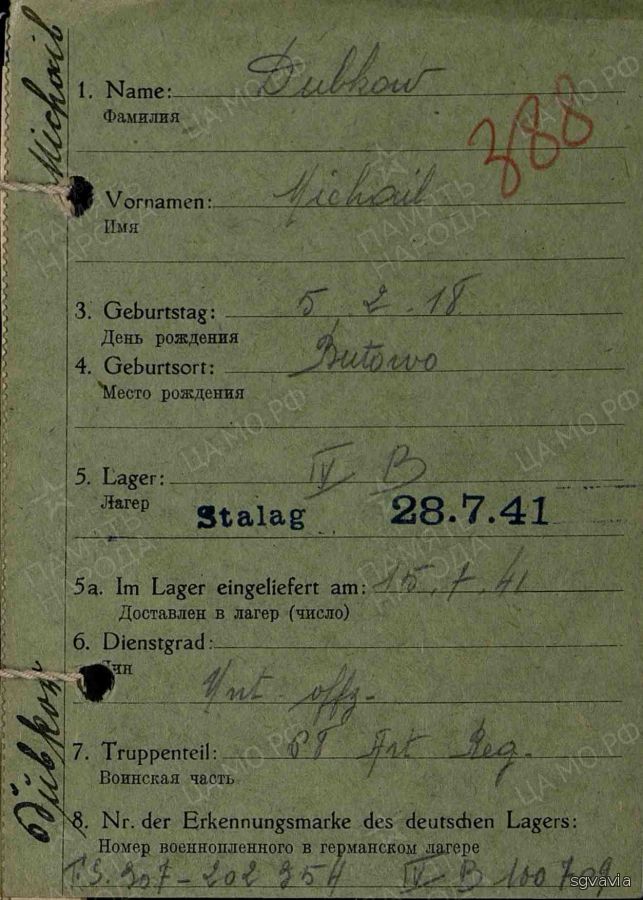 Michail
1. Name: Dubkow
Фамилия
388
Vornamen: Michail
Имя
3. Geburtstag: 5. 2. 18
День рождения
4. Geburtsort: Butowo
Место рождения
5. Lager: IV B
Лагер
Stalag 28.7.41
5a. Im Lager eingeliefert am: 15. 7. 41
Доставлен в лагер (число)
6. Dienstgrad:
Чин
Unt. offz.
7. Truppenteil: Art Reg.
Воинская часть
Dübkow
8. Nr. der Erkennungsmarke des deutschen Lagers:
Номер военнопленного в германском лагере
307-202 354 IV B 100 709
ПАМЯТЬ НАРОДА
ЦА МО РФ
sgvavia